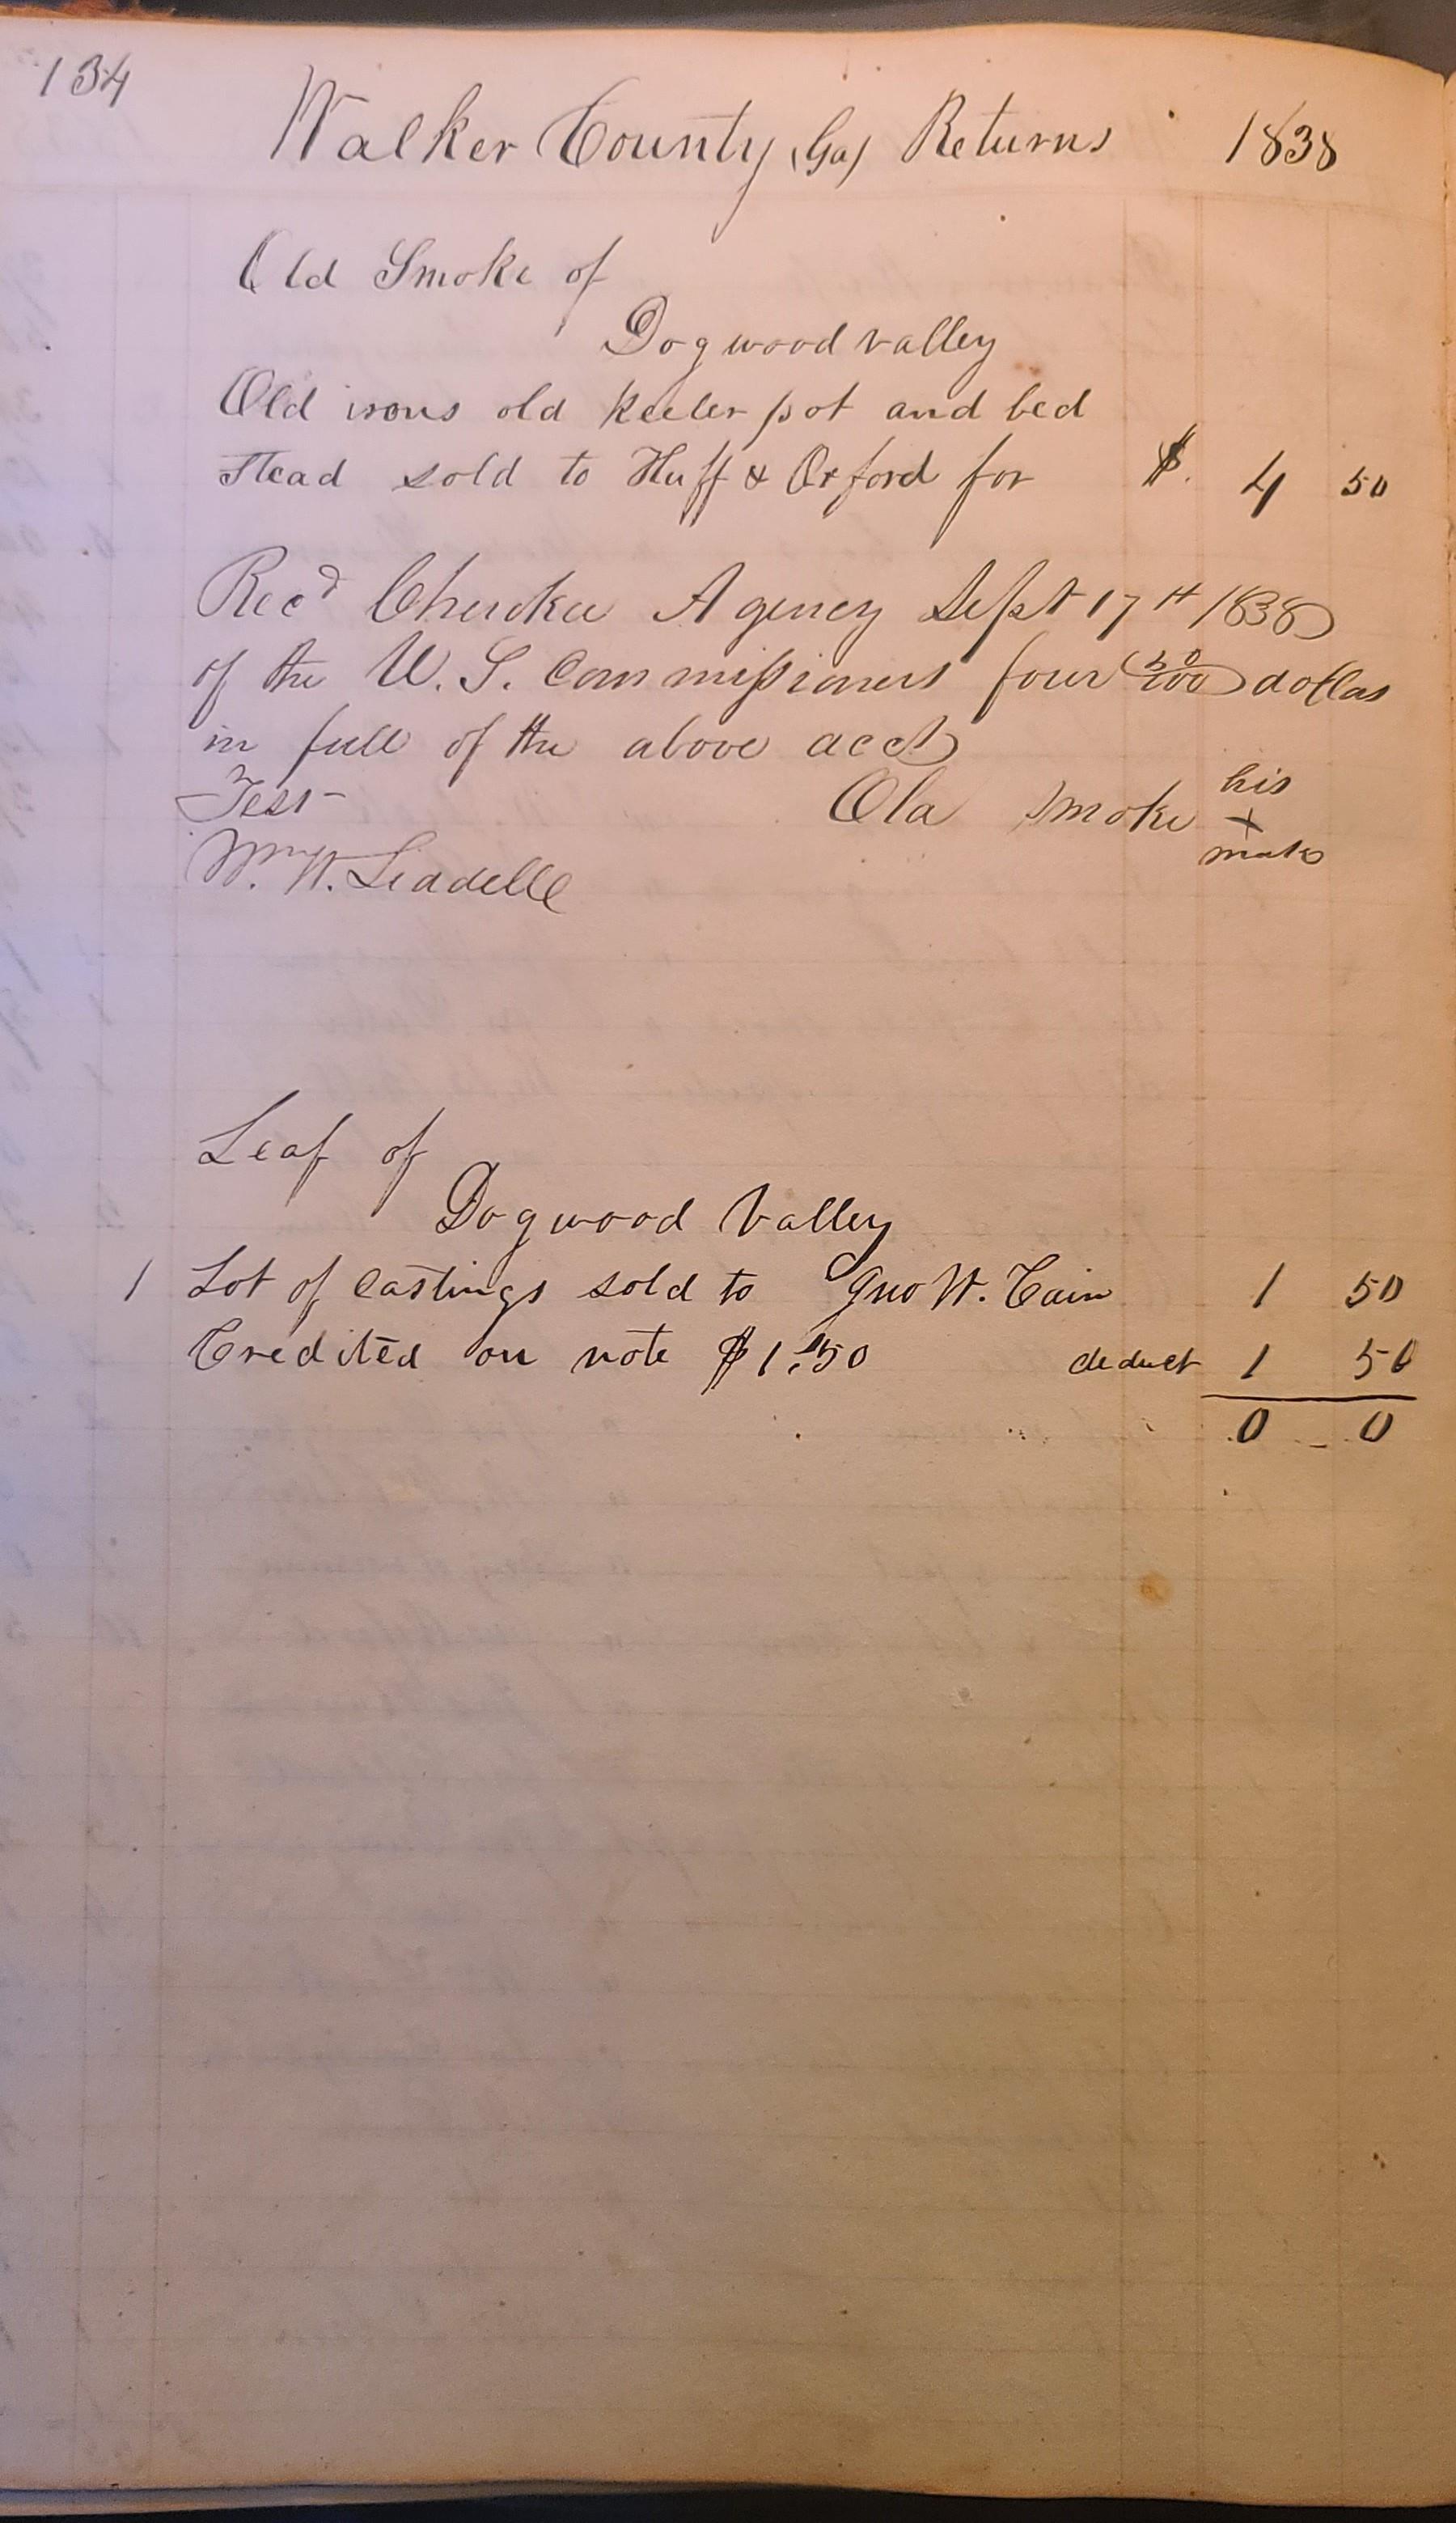 134
Walker County (Ga) Returns 1838
Old Smoke of
Dogwood valley
Old irons old keeler pot and bed
stead sold to Huff & Orford for $. 4 50
Recd Cherokee Agency Sept 17th 1838
of the U. S. Commissioners four 50/100 dollas
in full of the above acct
Test his
Old Smoke +
Wm. H. Liddelle mark
Leaf of
Dogwood Valley
1 Lot of Castings sold to Geo W. Cain 1 50
Credited on note $1.50 deduct 1 50
0 0